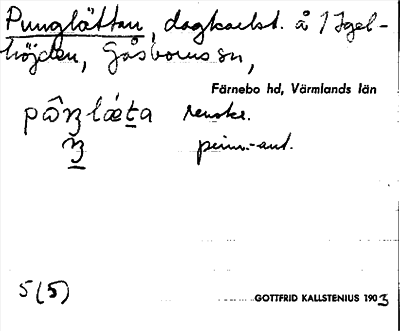 Punglättan, dagkarlst. å 1 Igel-
höjden, Gåsborns sn,
Färnebo hd, Värmlands län
renskr.
prim.-ant.
5(5)
GOTTFRID KALLSTENIUS 1903